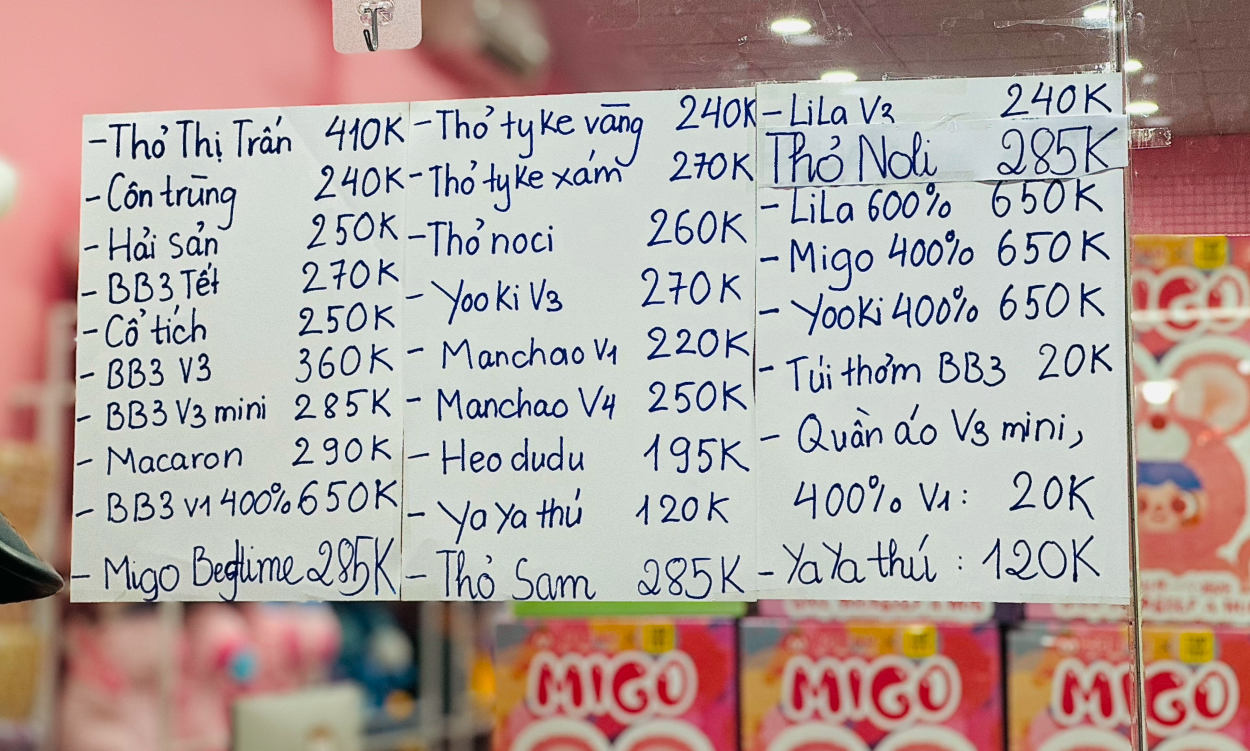 - Thỏ Thị Trấn 410K
- Côn trùng 240K
- Hải sản 250K
- BB3 Tết 270K
- Cổ tích 250K
- BB3 V3 360K
- BB3 V3 mini 285K
- Macaron 290K
- BB3 V1 400% 650K
- Migo Bedtime 285K
- Thỏ tyke vàng 240K
- Thỏ tyke xám 270K
- Thỏ noci 260K
- Yooki V3 270K
- Manchao V1 220K
- Manchao V4 250K
- Heo dudu 195K
- Ya Ya thú 120K
- Thỏ Sam 285K
- LiLa V2 240K
Thỏ Noli 285K
- LiLa 600% 650K
- Migo 400% 650K
- Yooki 400% 650K
- Túi thơm BB3 20K
- Quần áo V3 mini,
400% V1: 20K
- YaYa thú : 120K
MIGO
MIGO
MIGO